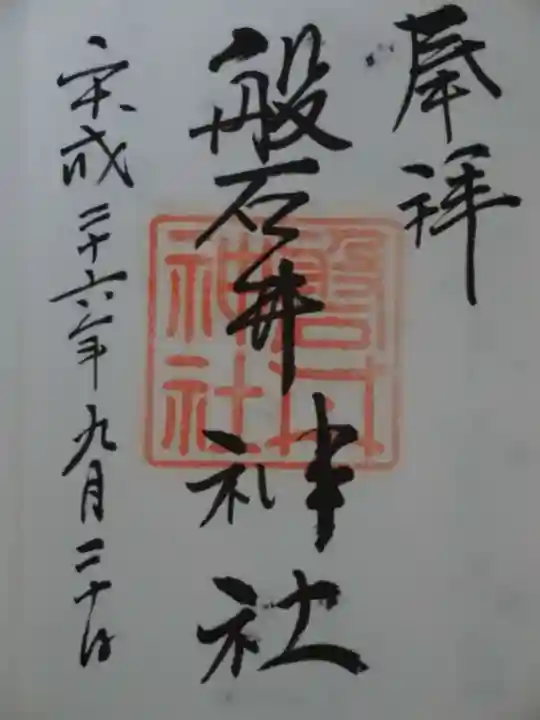 奉拝
磐井神社
磐井神社
平成二十六年九月二十日